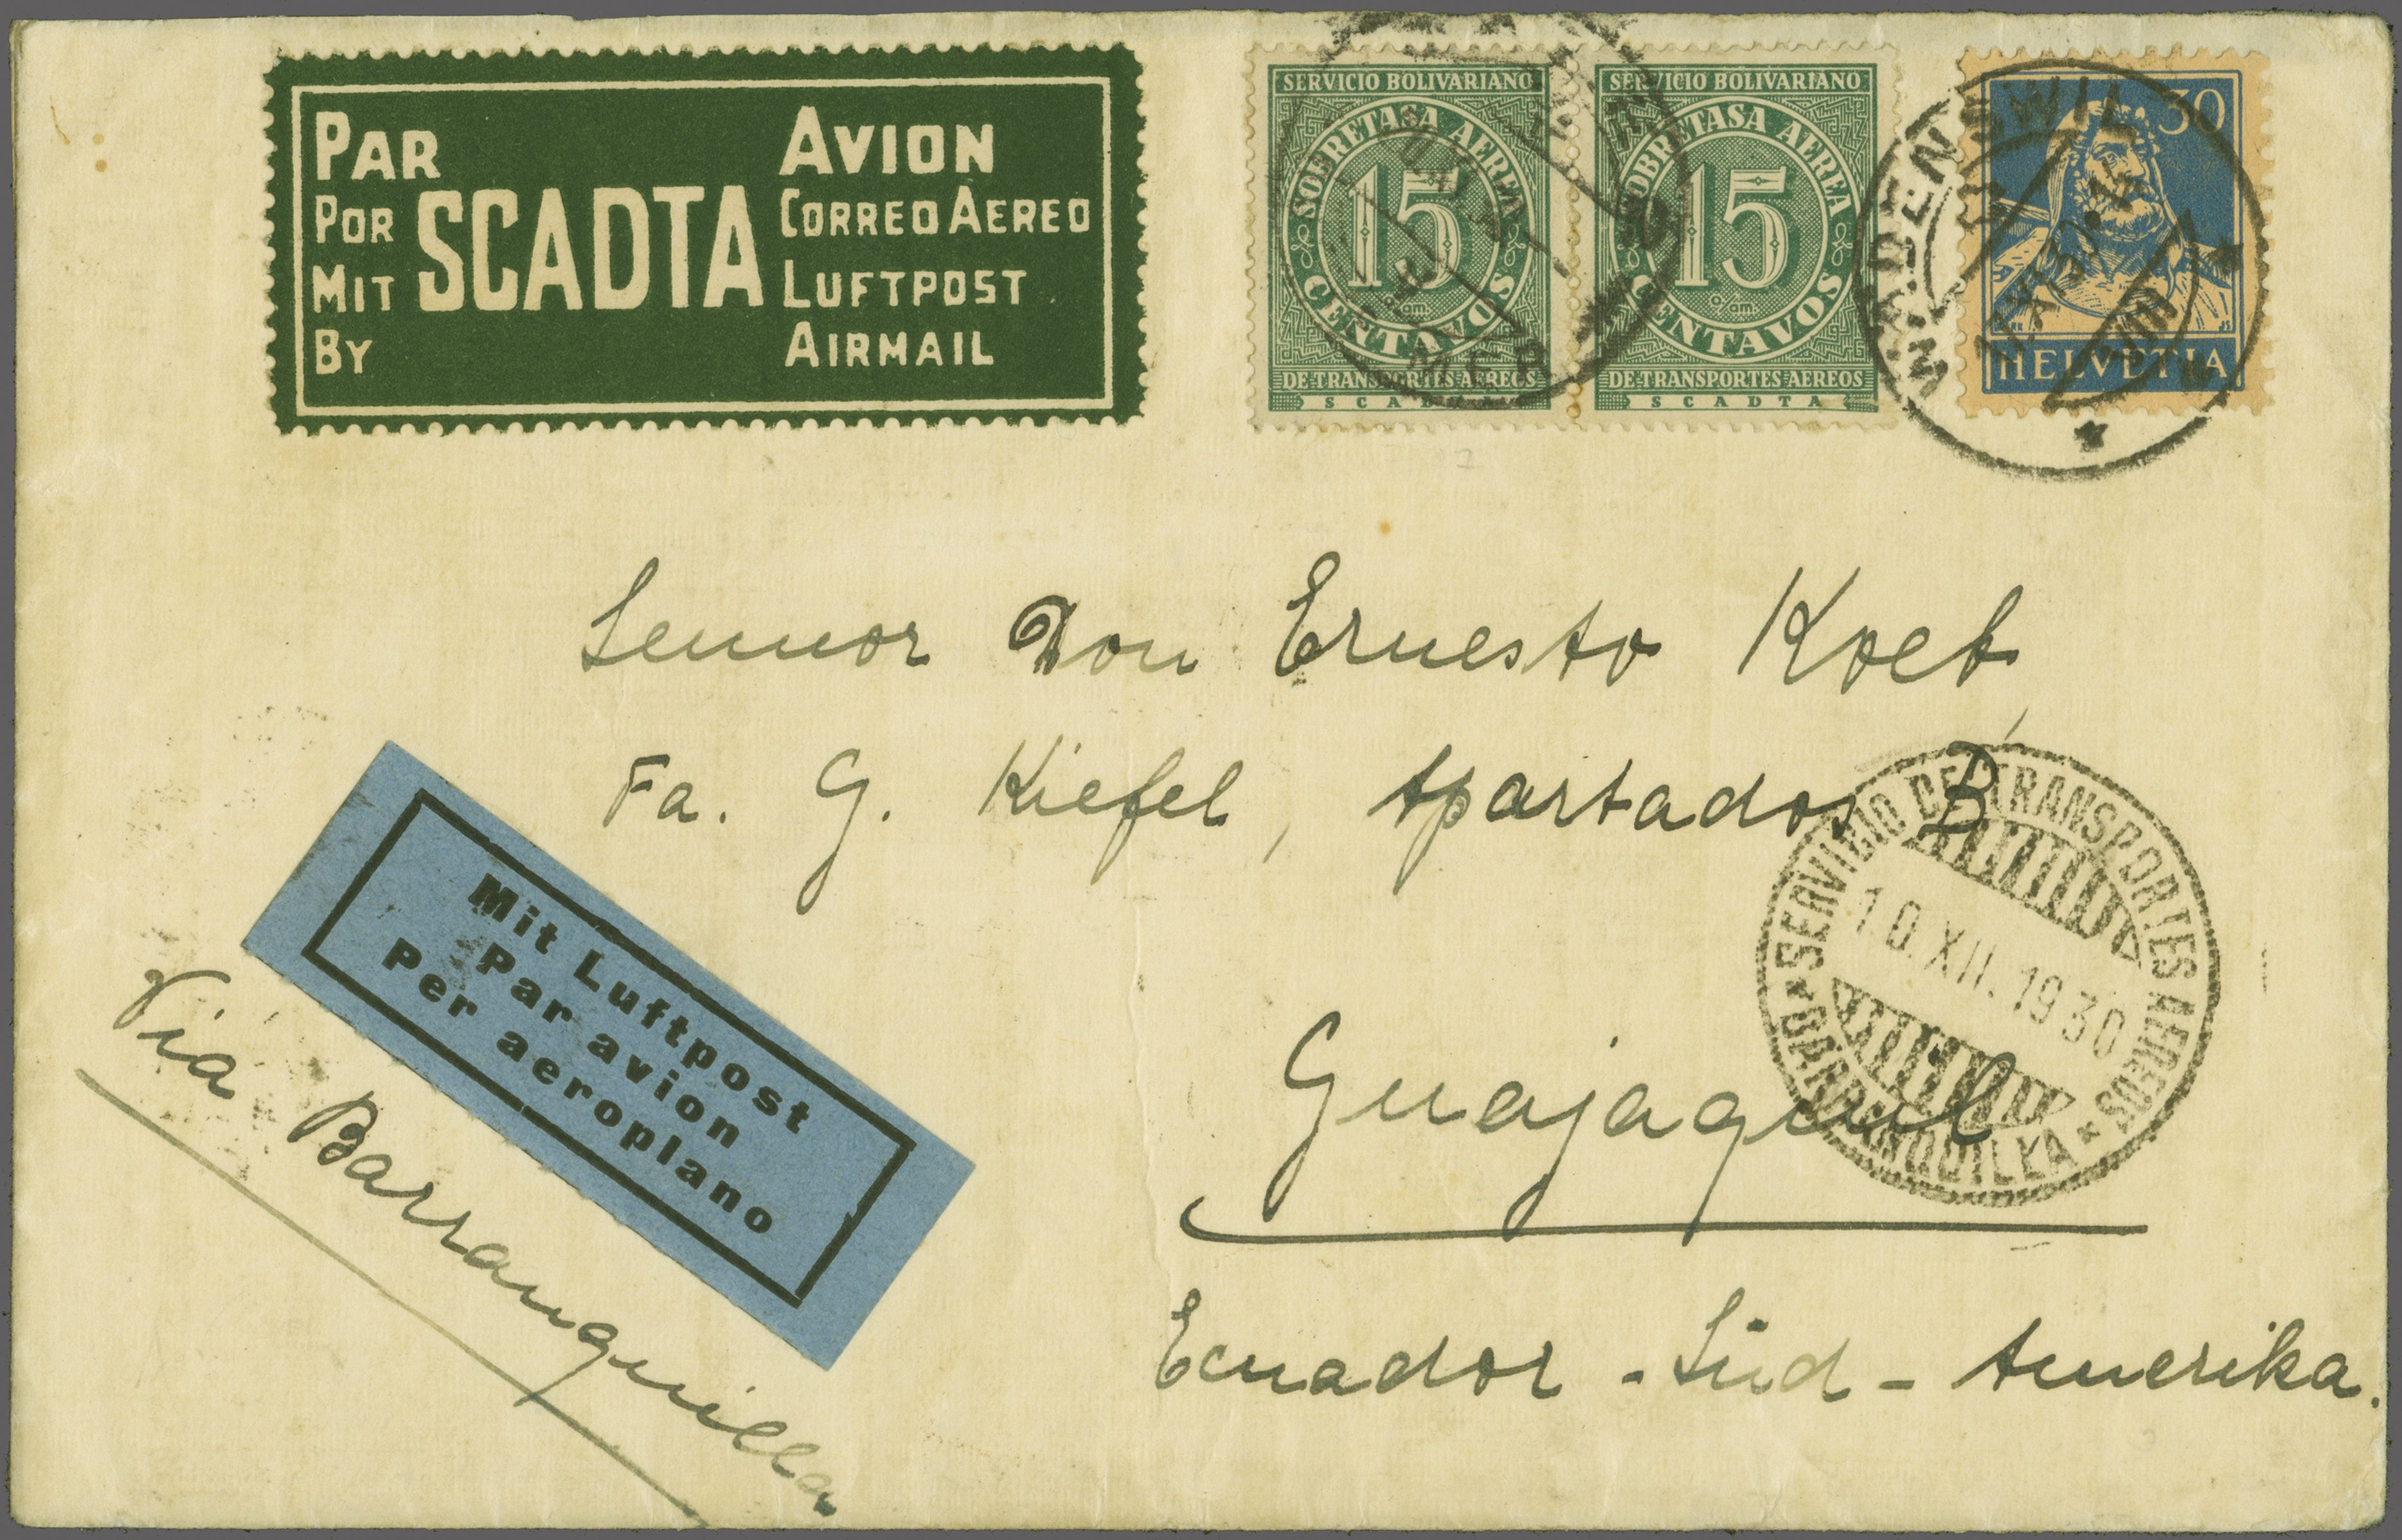 PAR AVION
POR CORREO AEREO
MIT SCADTA LUFTPOST
BY AIRMAIL
SERVICIO BOLIVARIANO
SOBRETASA AEREA
15
CENTAVOS
DE TRANSPORTES AEREOS
SCADTA
SERVICIO BOLIVARIANO
SOBRETASA AEREA
15
CENTAVOS
DE TRANSPORTES AEREOS
SCADTA
30
HELVETIA
WÄDENSWIL
Sennor Don Ernesto Koet,
Fa. G. Kiefel, Apartados B
SERVICIO DE TRANSPORTES AEREOS
10.XII.1930
BARRANQUILLA
Guajaquil
Ecuador - Süd - Amerika.
Mit Luftpost
Par avion
Per aeroplano
Via Barranquilla